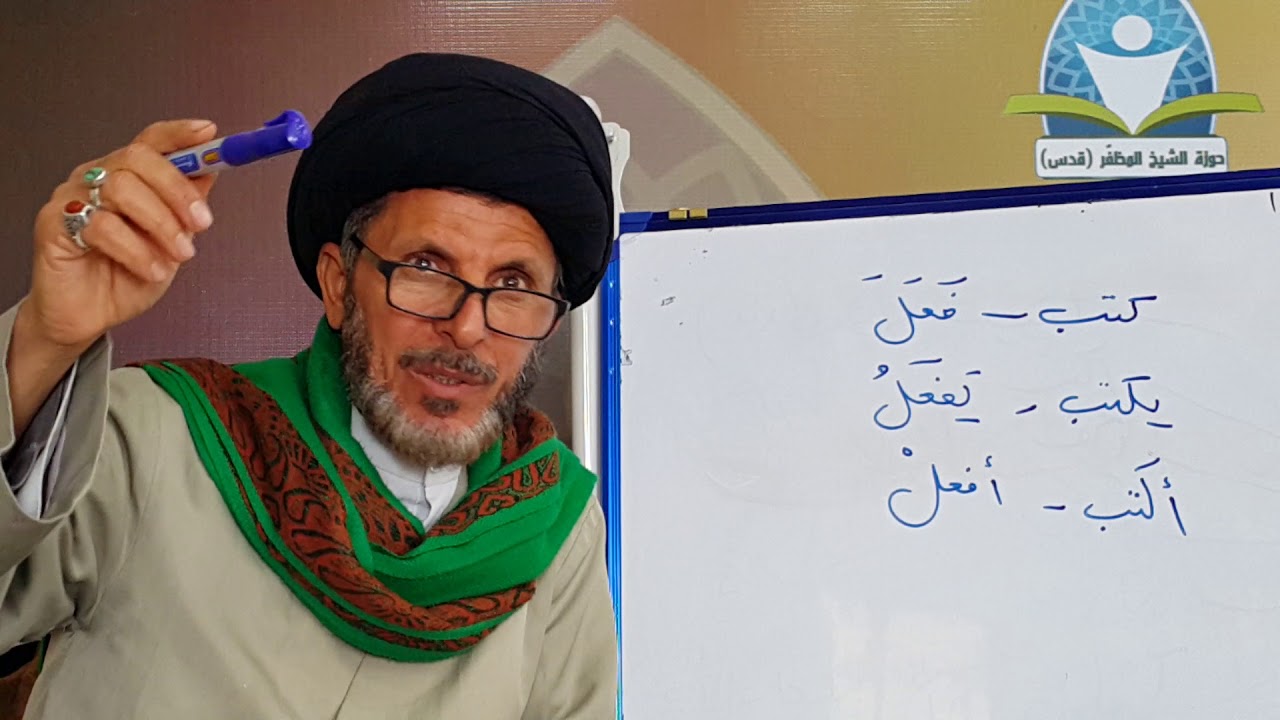 حوزة الشيخ المظفّر (قدس)
كتب - فَعَلَ
يكتب - يَفعَلُ
أكَتب - أفعلْ